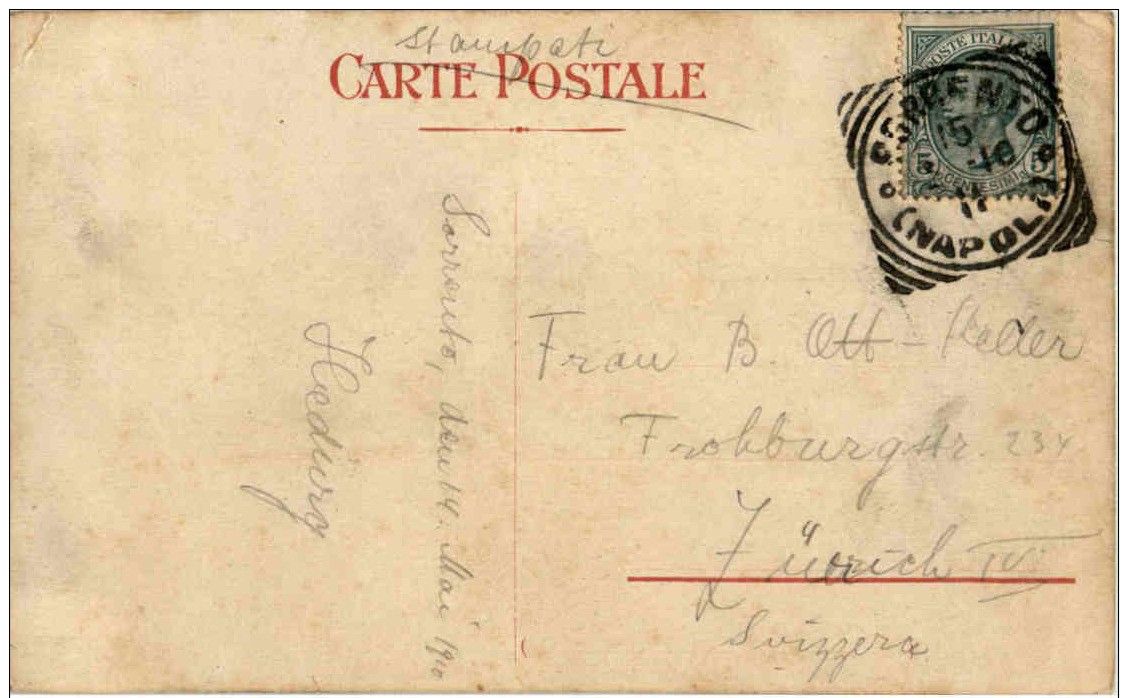 Stampati
CARTE POSTALE
POSTE ITALIANE
5 5
CENTESIMI
SORRENTO
15
10
(NAPOLI)
Sorrento, den 14. Mai 1910
Frau B. Ott-
Frohburgstr. 234
Zürich IV
Svizzera